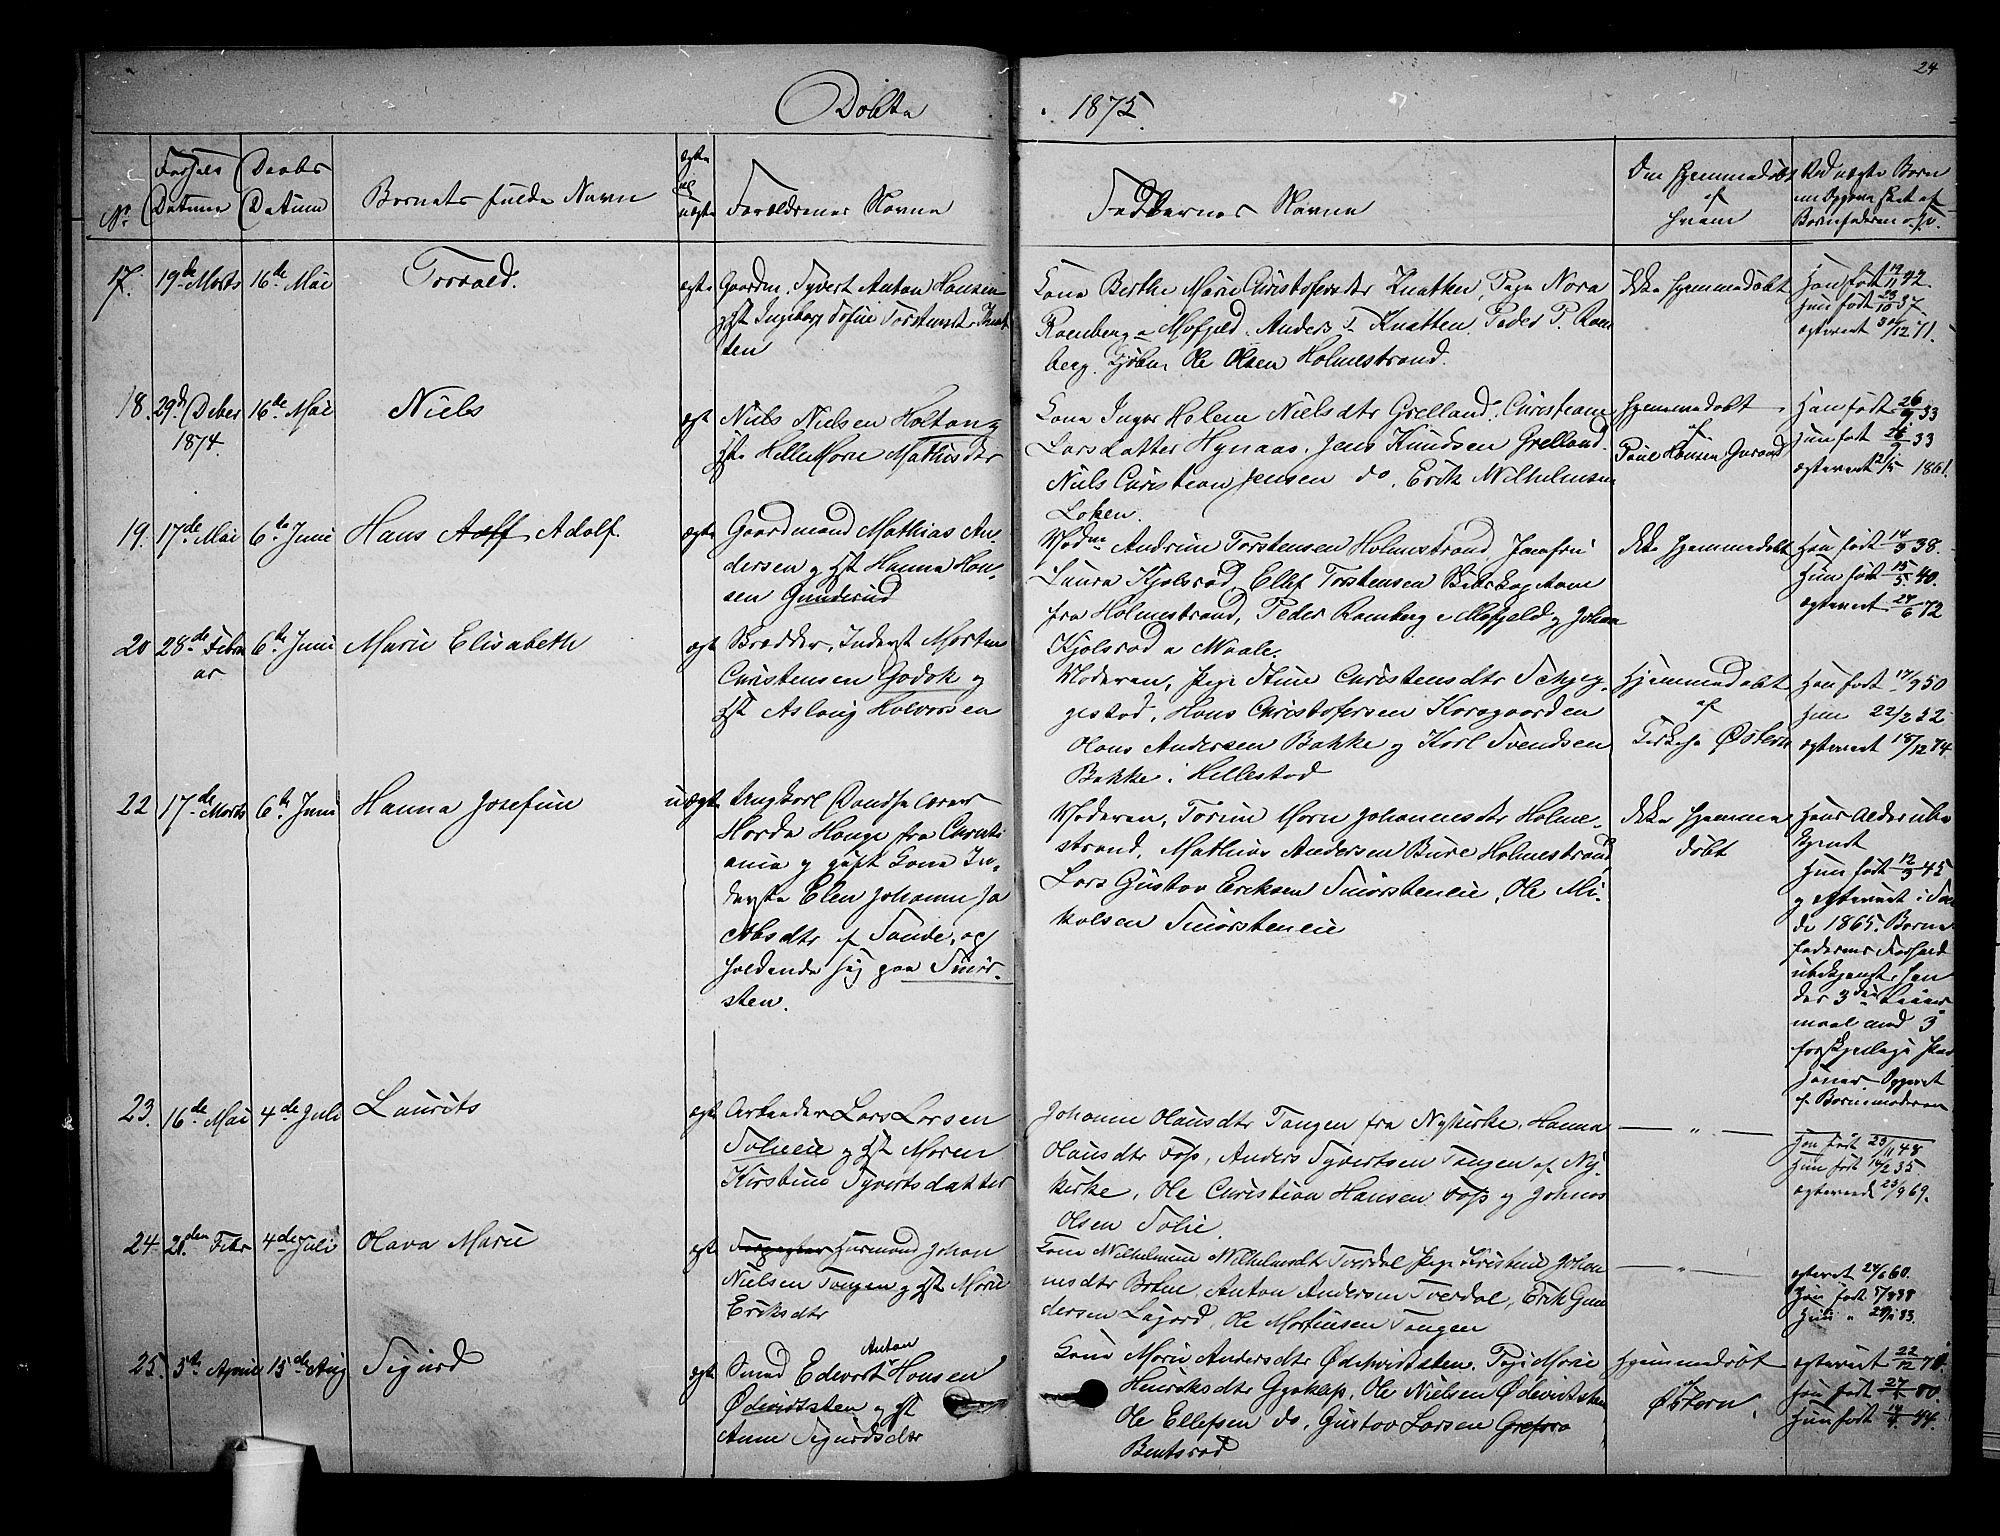 24
Døbte
1875.
No.
Fødsels
Datum
Daabs
Datum
Barnets fulde Navn
ægte
el
uægte
Forældrenes Navne
Faddernes Navne
Om hjemmedøbt
af
hvem
Ved uægte Børn
17. 19de Marts 16de Mai Torvald. ægte Gaardm. Syvert Anton Hansen
og Hst Ingeborg Tofine Torstensdtr Knat
ten
Kone Berthe Marie Christofersdtr Knatten, Pige Nora
Romberg a Mofjeld. Anders T. Knatten. Peder P. Rom
berg. Kjøbm. Ole Olsen Holmestrand.
Ikke hjemmedøbt
Han født 42.
Hun født 37
ægteviet 71.
18. 29d Deber 16de Mai Niels ægt Niels Nielsen Holtan og
1874.
Hst Helle Marie Mathisdtr
Kone Inger Helene Nielsdtr Grelland. Christiane
Larsdatter Hynaas. Jens Knudsen Grelland.
Niels Christian Jensen do, Erik Wilhelmsen
Løken.
hjemmedøbt
af
Poul Hansen
Han født 26/9 33
Hun født 33
ægteviet 1861.
19. 17de Mai 6te Juni Hans Aeff Adolf. ægte Gaardmand Mathias An
dersen og Hst Hanna Han
sen Gunderud
Andrine Torstensen Holmestrand, Jomfru
Laura Kjølsrød, Ellef Torstensen Skibskaptain
fra Holmestrand, Peder Romberg a Mofjeld og Johan
Kjølsrød a Waale.
Ikke hjemmedøbt
Han født 14/3 38.
Hun født 15/5 40.
ægteviet 24/6 72
20 28de Febru 6te Juni Marie Elisabeth ægt Inderst Morten
ar
Christensen Godok og
Hst Aslaug Halvorsen
Moderen, Pige Stine Christensdtr Schjeg
gestad, Hans Christofersen Korsgaarden
Hans Andersen Bakke og Karl Svendsen
Bakke i Hillestad
hjemmedøbt
af
Østern
Han født 17/9 50
Hun 22/2 52
ægteviet 18/12 74
22 17de Marts 6te Juni Hanna Josefine uægte Ungkarl Dandselærer
Horda Hauge fra Christi
ania og gift Kone In
derste Elen Johanne Ja
cobsdtr af Sande, op
holdende sig paa Smør
sten.
Moderen, Torine Marn Johannesdtr Holme
strand, Mathias Andersen Bure Holmestrand
Lars Gustav Eriksen Smørsteneie, Ole Mi
kelsen Smørsteneie
Ikke hjemme
døbt
Hans Alder ube
kjendt
Hun født 12/3 45
og ægteviet i San
de 1865. Barne
faderens Forhold
ubekjendt, hen
des 3die Leier
maal med 3
forskjellige Per
soner. Opgivet
af Barnemoderen
23. 16de Mai 4de Juli Laurits ægte Arbeider Lars Larsen
Solieeie og Hst Maren
Kirstine Syvertsdatter
Johanne Olausdtr Tangen fra Nykirke, Hanna
Olausdtr Foss, Anders Syvertsen Tangen af Ny
kirke, Ole Christian Hansen Foss og Johnas
Olsen Solie.
— " —
Han født 23/11 48
Hun født 14/2 35
ægteviede 23/9 69.
24 21den Febr 4de Juli Olava Marie ægt Forpagter Husmand Johan
Nielsen Tangen og Hst Marie
Eriksdtr
Kone Wilhelmine Wilhelmsdtr Tverdal Pige Kristine Johan
nesdtr Anton Andersen Tverdal, Erik Gun
dersen Løjord, Ole Martinsen Tangen
— " —
ægteviet 24/6 60.
Han født 38
Hun " 33.
25. 5te April 15de Aug Sigurd ægt Smed Edevart Anton Hansen
Ødevidtsten og Hst
Anne Sigurdsdtr
Kone Marie Andersdtr Ødevidtsten, Pige Marie
Henriksdtr Ole Nielsen Ødevidtsten
Ole Ellefsen do, Gustav Larsen Grefsro
Bentsrød
hjemmedøbt
af
Østern.
ægteviet 22/12 70.
Han født 27 50.
Hun født 44.